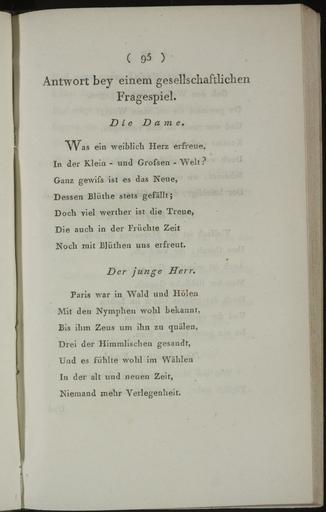 ( 95 )
Antwort bey einem gesellschaftlichen
Fragespiel.
Die Dame.
Was ein weiblich Herz erfreue,
In der Klein - und Grofsen - Welt?
Ganz gewifs ist es das Neue,
Dessen Blüthe stets gefällt;
Doch viel werther ist die Treue,
Die auch in der Früchte Zeit
Noch mit Blüthen uns erfreut.
Der junge Herr.
Paris war in Wald und Hölen
Mit den Nymphen wohl bekannt,
Bis ihm Zeus um ihn zu quälen,
Drei der Himmlischen gesandt,
Und es fühlte wohl im Wählen
In der alt und neuen Zeit,
Niemand mehr Verlegenheit.